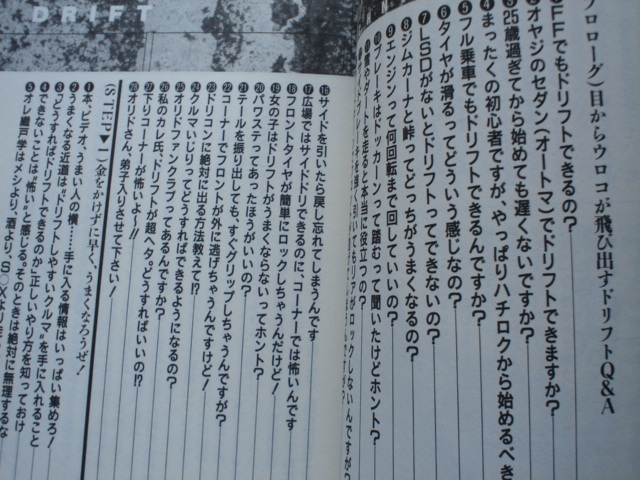 DRIFT
プロローグ)目からウロコが飛び出すドリフトQ&A
❶FFでもドリフトできるの?
❷オヤジのセダン(オートマ)でドリフトできますか?
❸25歳過ぎてから始めても遅くないですか?
❹まったくの初心者ですが、やっぱりハチロクから始めるべき
❺フル乗車でもドリフトできるんですか?
❻タイヤが滑るってどういう感じなの?
❼LSDがないとドリフトってできないの?
❽ジムカーナと峠ってどっちがうまくなるの?
❾エンジンって何回転まで回していいの?
ブレーキは、ガッカーンって踏むって聞いたけどホント?
ダートを走ると本当に役立つの?
強く引いてもリアがロックしないんですが?
⓰サイドを引いたら戻し忘れてしまうんです
⓱広場ではサイドドリできるのに、コーナーでは怖いんです
⓲フロントタイヤが簡単にロックしちゃうんだけど!
⓳女の子はドリフトがうまくならないってホント?
⓴パワステってあったほうがいいの?
㉑テールを振り出しても、すぐグリップしちゃうんです
㉒コーナーでフロントが外に逃げちゃうんですが?
㉓ドリコンに絶対に出る方法教えて!?
㉔クルマいじりってどうすればできるようになるの?
㉕オリドファンクラブってあるんですか?
㉖私のカレ氏、ドリフトが超ヘタ。どうすればいいの!?
㉗下りコーナーが怖いよー!
㉘オリドさん、弟子入りさせて下さい!
(STEP▼1)金をかけずに早く、うまくなろうぜ!
❶本、ビデオ、うまい人の横……手に入る情報はいっぱい集めろ!
❷うまくなる近道は“ドリフトしやすいクルマ”を手に入れること
❸「どうすればドリフトできるのか」正しいやり方を知っておけ
❹できないことは“怖い”と感じる。そのときは絶対に無理するな
❺オレ織戸学はメシより、酒より、S○Xより走